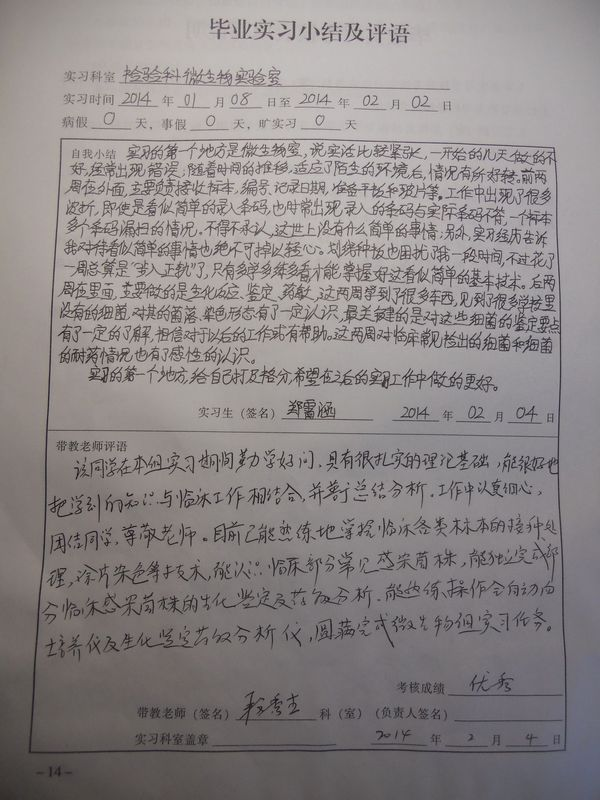 毕业实习小结及评语
实习科室 检验科微生物实验室
实习时间 2014 年 01 月 08 日至 2014 年 02 月 02 日
病假 0 天，事假 0 天，旷实习 0 天
自我小结 实习的第一个地方是微生物室，说实话比较紧张，一开始的几天做的不
好，经常出现错误，随着时间的推移，适应了陌生的环境后，情况有所好转。前两
周在外面，主要负责接收标本，编号，记录日期，准备平板和玻片等。工作中出现了很多
波折，即使是看似简单的录入条码，也时常出现录入的条码与实际条码不符，一个标本
多个条码漏扫的情况。不得不承认，这世上没有什么简单的事情；另外，实习经历告诉
我对待看似简单的事情也绝不可掉以轻心。划线种板也困扰了我一段时间，不过花了
一周总算是“步入正轨”了，只有多学多练多看才能掌握好这看似简单的基本技术。后两
周在里面，主要做的是生化反应、鉴定、药敏，这两周学到了很多东西，见到了很多学校里
没有的细菌，对其的菌落、染色形态有了一定认识，最关键的是对这些细菌的鉴定要点
有了一定的了解，相信对于以后的工作或有帮助。这两周对临床常见检出的细菌和细菌
的耐药情况也有了感性的认识。
实习的第一个地方，给自己打及格分，希望在之后的实习工作中做的更好。
实习生（签名） 郑雷涵 2014 年 02 月 04 日
带教老师评语
该同学在本组实习期间勤学好问，具有很扎实的理论基础，能很好地
把学到的知识与临床工作相结合，并善于总结分析。工作中认真细心，
团结同学，尊敬老师。目前已能熟练地掌握临床各类标本的接种处
理，涂片染色等技术，能认识临床部分常见感染菌株，能独立完成部
分临床感染菌株的生化鉴定及药敏分析。能熟练操作全自动血
培养仪及生化鉴定药敏分析仪，圆满完成微生物组实习任务。
考核成绩 优秀
带教老师（签名） 科（室）（负责人签名）
实习科室盖章 2014 年 2 月 4 日
– 14 –